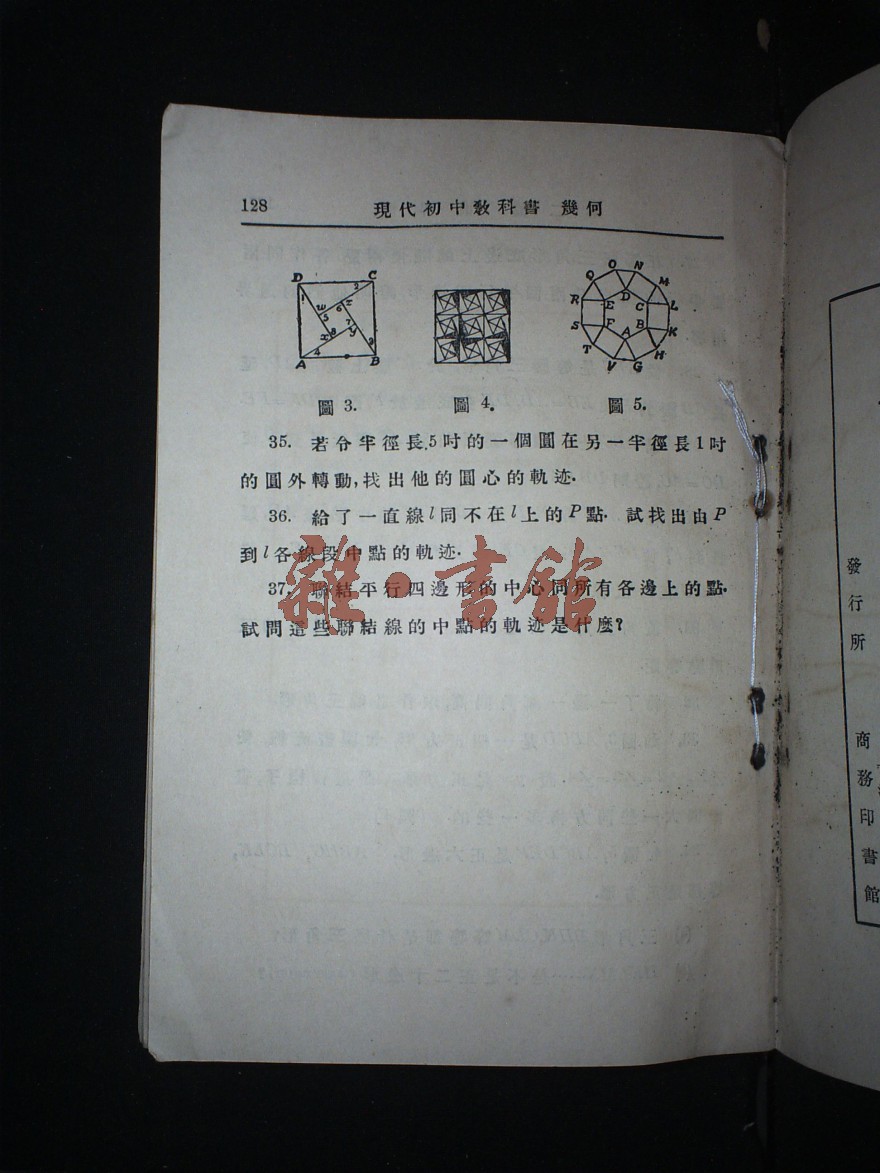 128
現代初中敎科書 幾何
D C
2
1
w
z
6
5
7
x
8
y
3
4
A B
圖 3.
圖 4.
O N
Q M
D
R E C L
S F B K
A
T H
V G
圖 5.
35. 若令半徑長.5吋的一個圓在另一半徑長1吋
的圓外轉動,找出他的圓心的軌迹.
36. 給了一直線l同不在l上的P點. 試找出由P
到l各線段中點的軌迹.
37. 聯結平行四邊形的中心同所有各邊上的點.
試問這些聯結線的中點的軌迹是什麼?
雜·書館
發行所
商務印書館